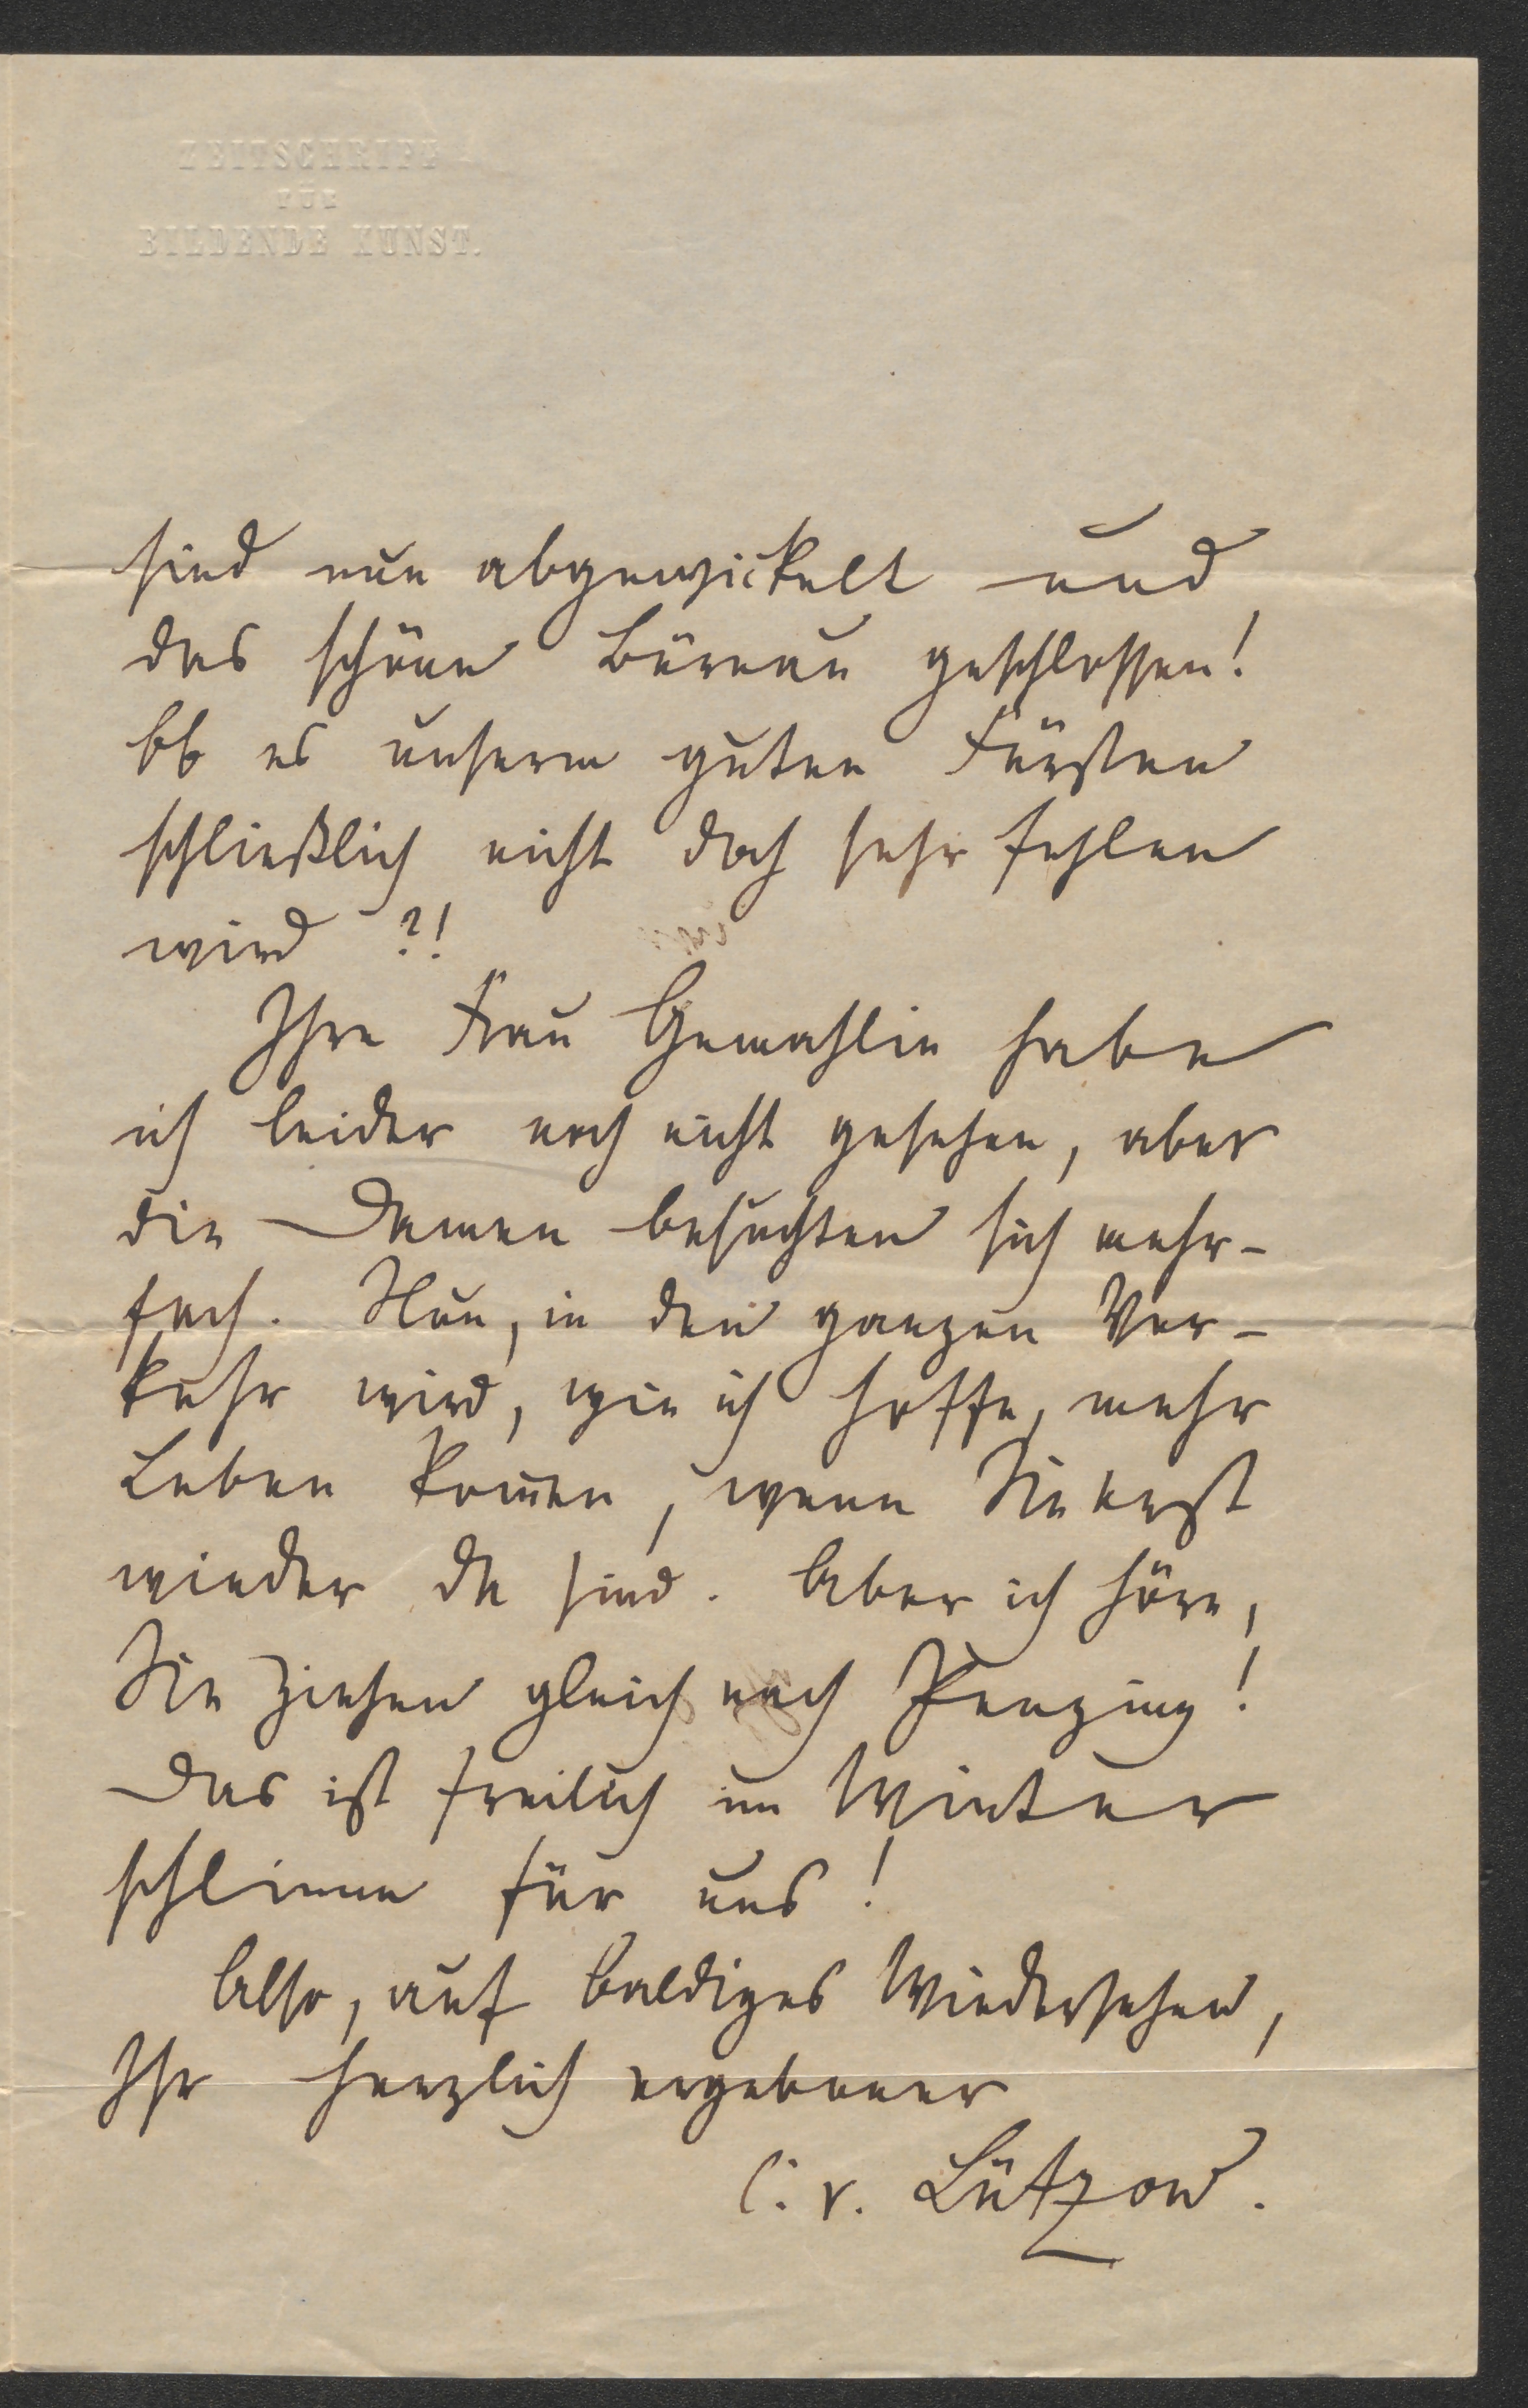 ZEITSCHRIFT
FÜR
BILDENDE KUNST.
sind nun abgewickelt und
das schöne Büreau geschlossen!
Ob es unserm guten Fürsten
schließlich nicht doch sehr fehlen
wird ?!
Ihre Frau Gemahlin habe
ich leider noch nicht gesehen, aber
die Damen besuchten sich mehr-
fach. Nun, in den ganzen Ver-
kehr wird, wie ich hoffe, mehr
Leben kom̄en, wenn Sie erst
wieder da sind. Aber ich höre,
Sie ziehen gleich nach Penzing!
Das ist freilich im Winter
schlimm für uns!
Also, auf baldiges Wiedersehen,
Ihr herzlich ergebener
C. v. Lützow.